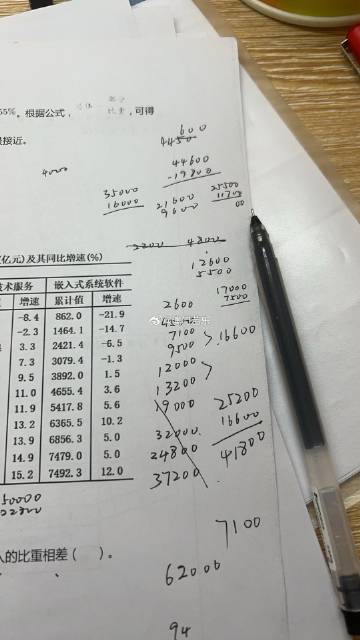 55%。根据公式，
比重，可得
接近。
600
4450
40000
44600
-19800
35000
16000
21600
9600
25500
11700
00
4800
12600
5500
(亿元)及其同比增速(%)
术服务 嵌入式系统软件
增速 累计值 增速
-8.4 862.0 -21.9
-2.3 1464.1 -14.7
3.3 2421.4 -6.5
7.3 3079.4 -1.3
9.5 3892.0 1.5
11.0 4655.4 3.6
11.9 5417.8 5.6
13.2 6365.5 10.2
13.9 6856.3 5.0
14.9 7479.0 5.0
15.2 7492.3 12.0
2600
7100
9500
16600
17000
7500
12000
13200
19000
32000
24800
37200
25200
16600
41800
50000
22800
7100
入的比重相差（ ）。
62000
94